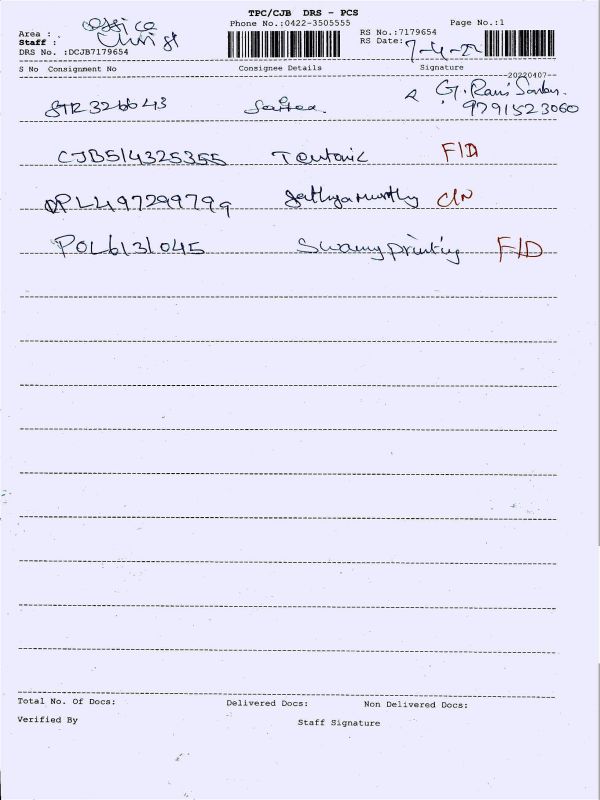 TPC/CJB DRS - PCS
Area : office Phone No.:0422-3505555 Page No.:1
Staff : Christ RS No.:7179654
DRS No. :DCJB7179654 RS Date: 7-4-22
S No Consignment No Consignee Details Signature
--20220407--
STR326643 G. Ravi
9791523060
CJB514325355 Teutonic F/D
PLL497299799 Sathyamurthy C/N
POL6131045 Swamy printing F/D
Total No. Of Docs: Delivered Docs: Non Delivered Docs:
Verified By Staff Signature